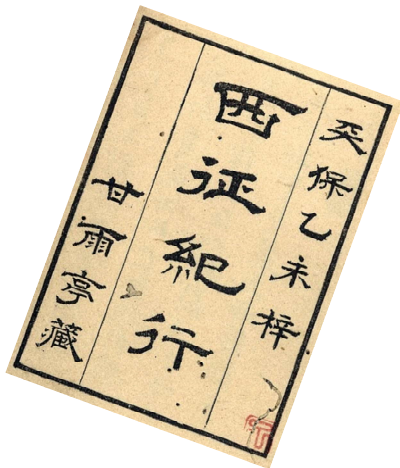 天保乙未梓
西征紀行
甘雨亭藏